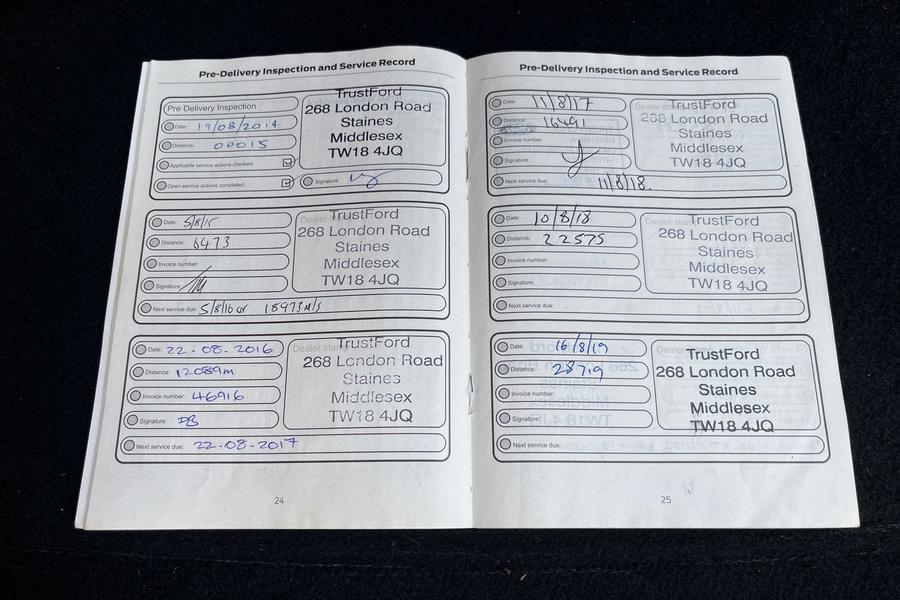 Pre-Delivery Inspection and Service Record
Pre Delivery Inspection
Date: 19/08/2014
Distance: 00015
Applicable service actions checked:
Open service actions completed:
Signature:
TrustFord
268 London Road
Staines
Middlesex
TW18 4JQ
Date: 5/8/15
Distance: 6473
Invoice number:
Signature:
Next service due: 5/8/16 or 18973 m/s
Dealer
TrustFord
268 London Road
Staines
Middlesex
TW18 4JQ
Date: 22-08-2016
Distance: 12089m
Invoice number: 46916
Signature:
Next service due: 22-08-2017
Dealer
TrustFord
268 London Road
Staines
Middlesex
TW18 4JQ
24
Pre-Delivery Inspection and Service Record
Date: 11/8/17
Distance: 16491
Invoice number:
Signature:
Next service due: 11/8/18.
Dealer
TrustFord
268 London Road
Staines
Middlesex
TW18 4JQ
Date: 10/8/18
Distance: 22575
Invoice number:
Signature:
Next service due:
Dealer
TrustFord
268 London Road
Staines
Middlesex
TW18 4JQ
Date: 16/8/19
Distance: 28719
Invoice number:
Signature:
Next service due:
Dealer
TrustFord
268 London Road
Staines
Middlesex
TW18 4JQ
25